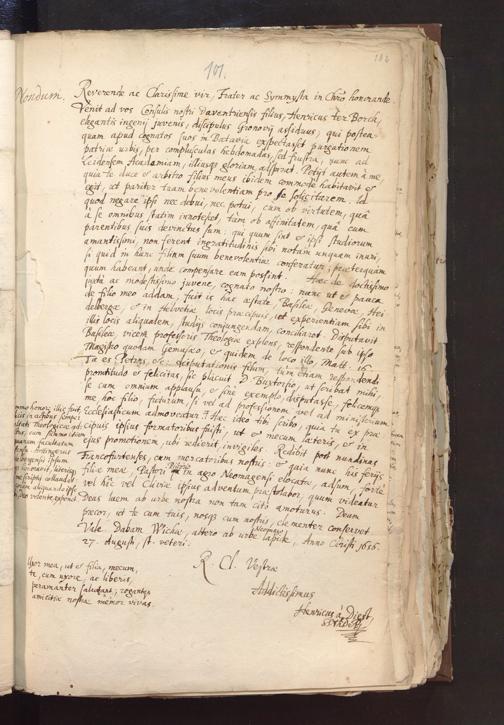 101.
182
Nondum.
Reverende ac Clarissime vir, Frater ac Symmysta in Chro honorande
Venit ad vos Consulis nostri Daventriensis filius, Henricus ter Borch,
elegantis ingenij juvenis, discipulus Gronovij assiduus, qui postea
quam apud cognatos suos in Batavia expectasset purgationem
patriæ urbis, per complusculas hebdomadas, sed frustra, nunc ad
Leidensem Academiam, illiusque gloriam aspirat. Petijt autem à me
quia te duce et arbitro filius meus ibidem commode habitavit et
egit, ut pariter tuam benevolentiam pro se solicitarem. Id
quod negare ipsi nec debui, nec potui, cum ob virtutem, quâ
a se omnibus statim innotescet, tum ob affinitatem, quâ cum
parentibus suis devinctus sum: qui quum sint et ipsi studiorum
amantissimi, non ferent ingratitudinis sibi notam unquam inuri,
si quid in hunc filium suum benevolentiæ conferatur, præterquam
quum habeant, unde compensare eam possint. Hæc de doctissimo
juxtà ac modestissimo juvene, cognato nostro: nunc ut et pauca
de filio meo addam, fuit is hac æstate Basileæ, Genevæ, Hei
delbergæ, et in Helvetiæ locis præcipuis, et experientiam sibi in
illis locis aliqualem, studijs conjungendam, conciliavit. Disputavit
Basileæ, vicem professoris Theologiæ explens, respondente sub ipso
Magistro quodam et quidem de loco illo Matt. 16.
Tu es Petrus, &c. disputationis filum, tum etiam respondendi
promtitudo et felicitas, sic placuit D. Buxtorfio, ut scribat mihi
se cum omnium applausu et sine exemplo, disputasse, felicemque
me hoc filio, futurum, si vel ad professionem vel ad ministerium
Ecclesiasticum admoveatur. Hæc ideo tibi scribo, quia tu ex præ
cipuis ipsius formatoribus fuisti, ut et mecum læteris, et in
ejus promotionem, ubi redierit, invigiles. Redibit post nundinas
Francofurtenses, cum mercatoribus nostris: et quia nunc his ferijs
filiæ meæ, Pastori in agro Neomagensi elocatæ, adsum, forte
vel hîc vel Cliviæ ipsius adventum præstolabor, quum videatur
Deus luem ab urbe nostra non tam citò amoturus. Deum
precor, ut te cum tuis, nosque cum nostris, clementer conservet
Vale. Dabam Wichiæ, altero ab urbe Neomagi lapide, Anno Christi 1656.
27. Augusti, st. veteri.
R. Cl. Vestræ
Addictissimus
Henricus à Diest
honor illic fuit,
Theologicæ
Uxor mea, ut et filia, mecum,
te, cum uxore, ac liberis,
peramanter salutant, rogantes
amicitiæ nostræ memor vivas.